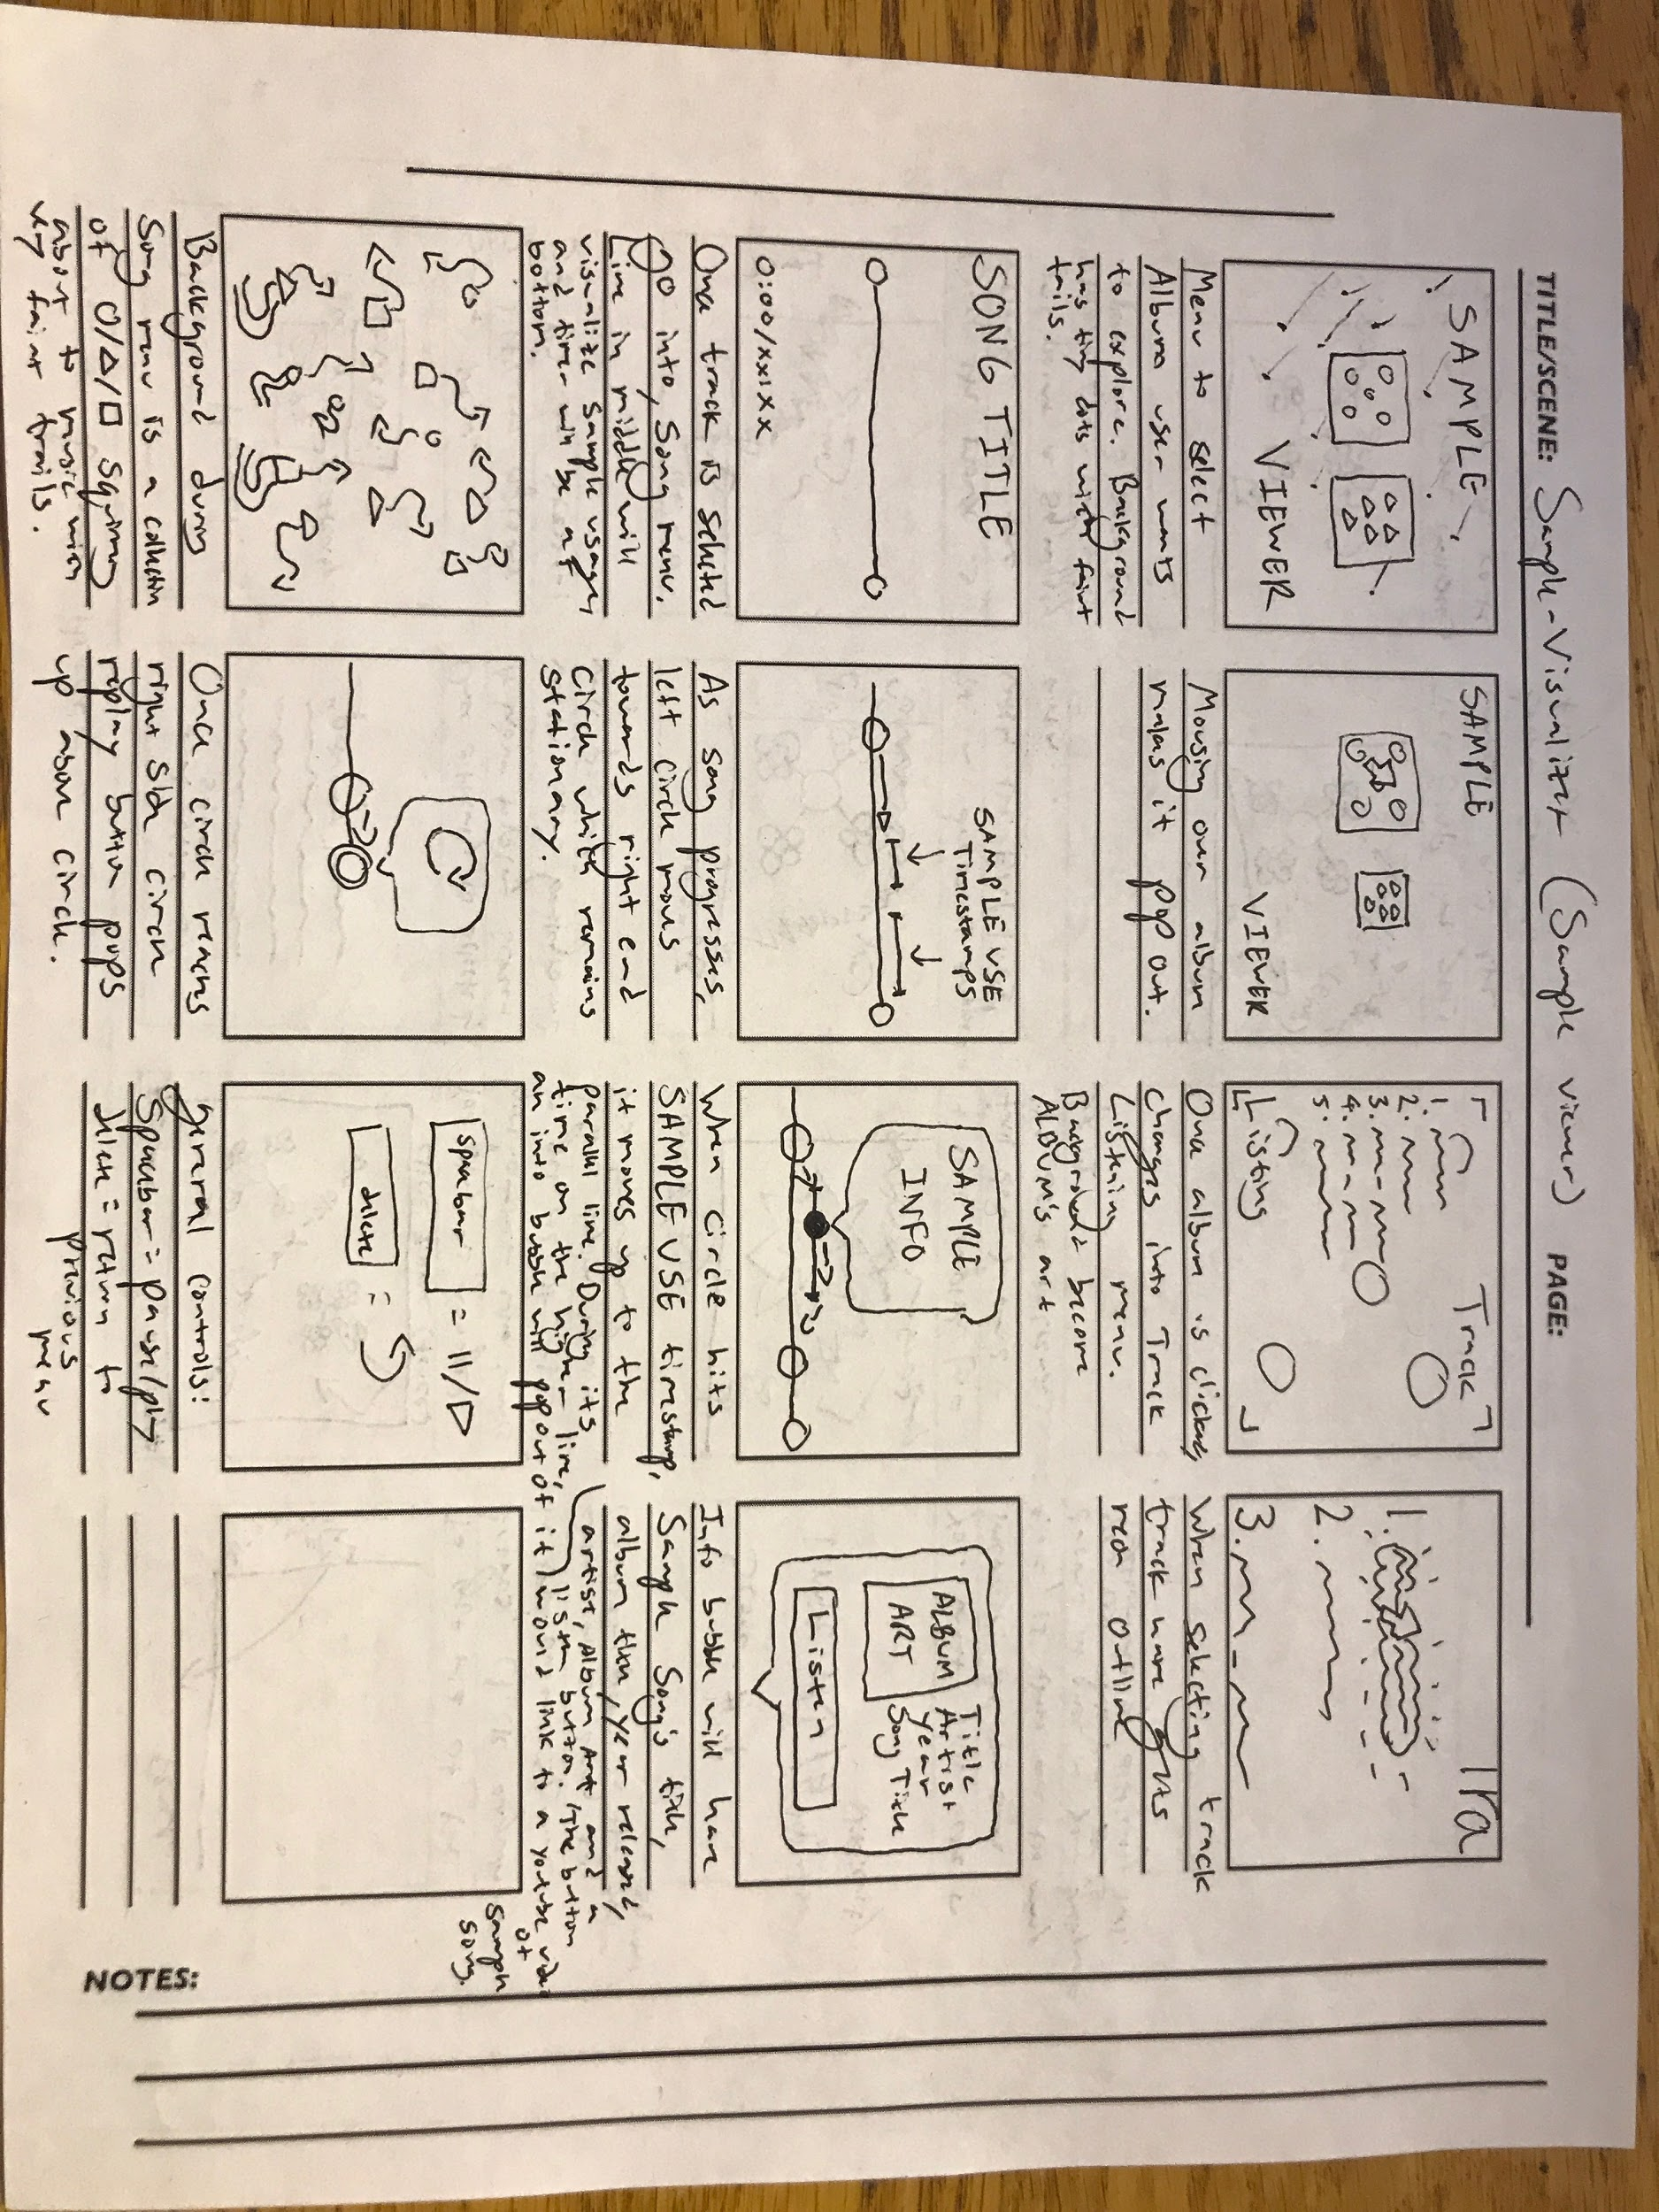 TITLE/SCENE: Sample-Visualizer (Sample viewer) PAGE:
SAMPLE
VIEWER
Menu to select
Album user wants
to explore. Background
has tiny dots with faint
trails.
SAMPLE
VIEWER
Mousing over album
makes it pop out.
Track
1.
2.
3.
4.
5.
Listing
Once album is clicked,
changes into Track
Listening menu.
Background become
ALBUM's art
Tra
1.
2.
3.
When selecting track
track name gets
neon outline
SONG TITLE
0:00/xx:xx
Once track is selected
go into, Song menu.
Line in middle will
visualize sample usage,
and timer will be at
bottom.
SAMPLE USE
Timestamps
As song progresses,
left circle moves
towards right end
circle which remains
stationary.
SAMPLE
INFO
When circle hits
SAMPLE USE timestamp,
it moves up to the
parallel line. During its
time on the higher line,
an info bubble will pop out of it
ALBUM
ART
Title
Artist
Year
Song Title
Listen
Info bubble will have
Sample Song's title,
album title, year released,
artist, album art and a
listen button. (The button
would link to a youtube video
of
sample
song.
Background during
Song menu is a collection
of O/△/□ squirming
about to music with
very faint trails.
Once circle reaches
right side circle
replay button pops
up above circle.
spacebar = 11/▷
delete =
general controls:
Spacebar = pause/play
delete = return to
previous
menu
NOTES: